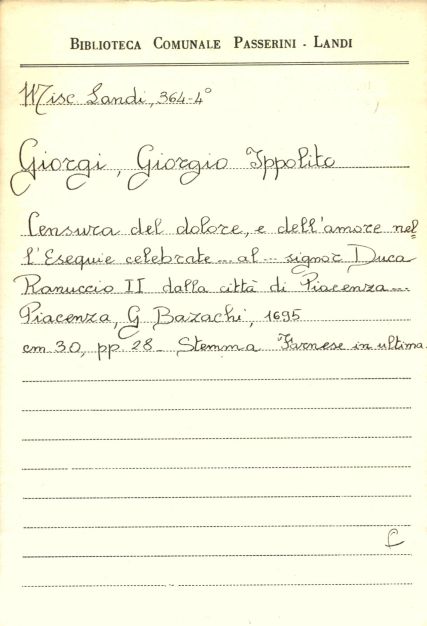 BIBLIOTECA COMUNALE PASSERINI - LANDI
Misc Landi, 364-4°
Giorgi, Giorgio Ippolito
Censura del dolore, e dell'amore nel=
l'Esequie celebrate... al... signor Duca
Ranuccio II dalla città di Piacenza...
Piacenza, G. Bazachi, 1695
cm 30, pp. 28 - Stemma Farnese in ultima.